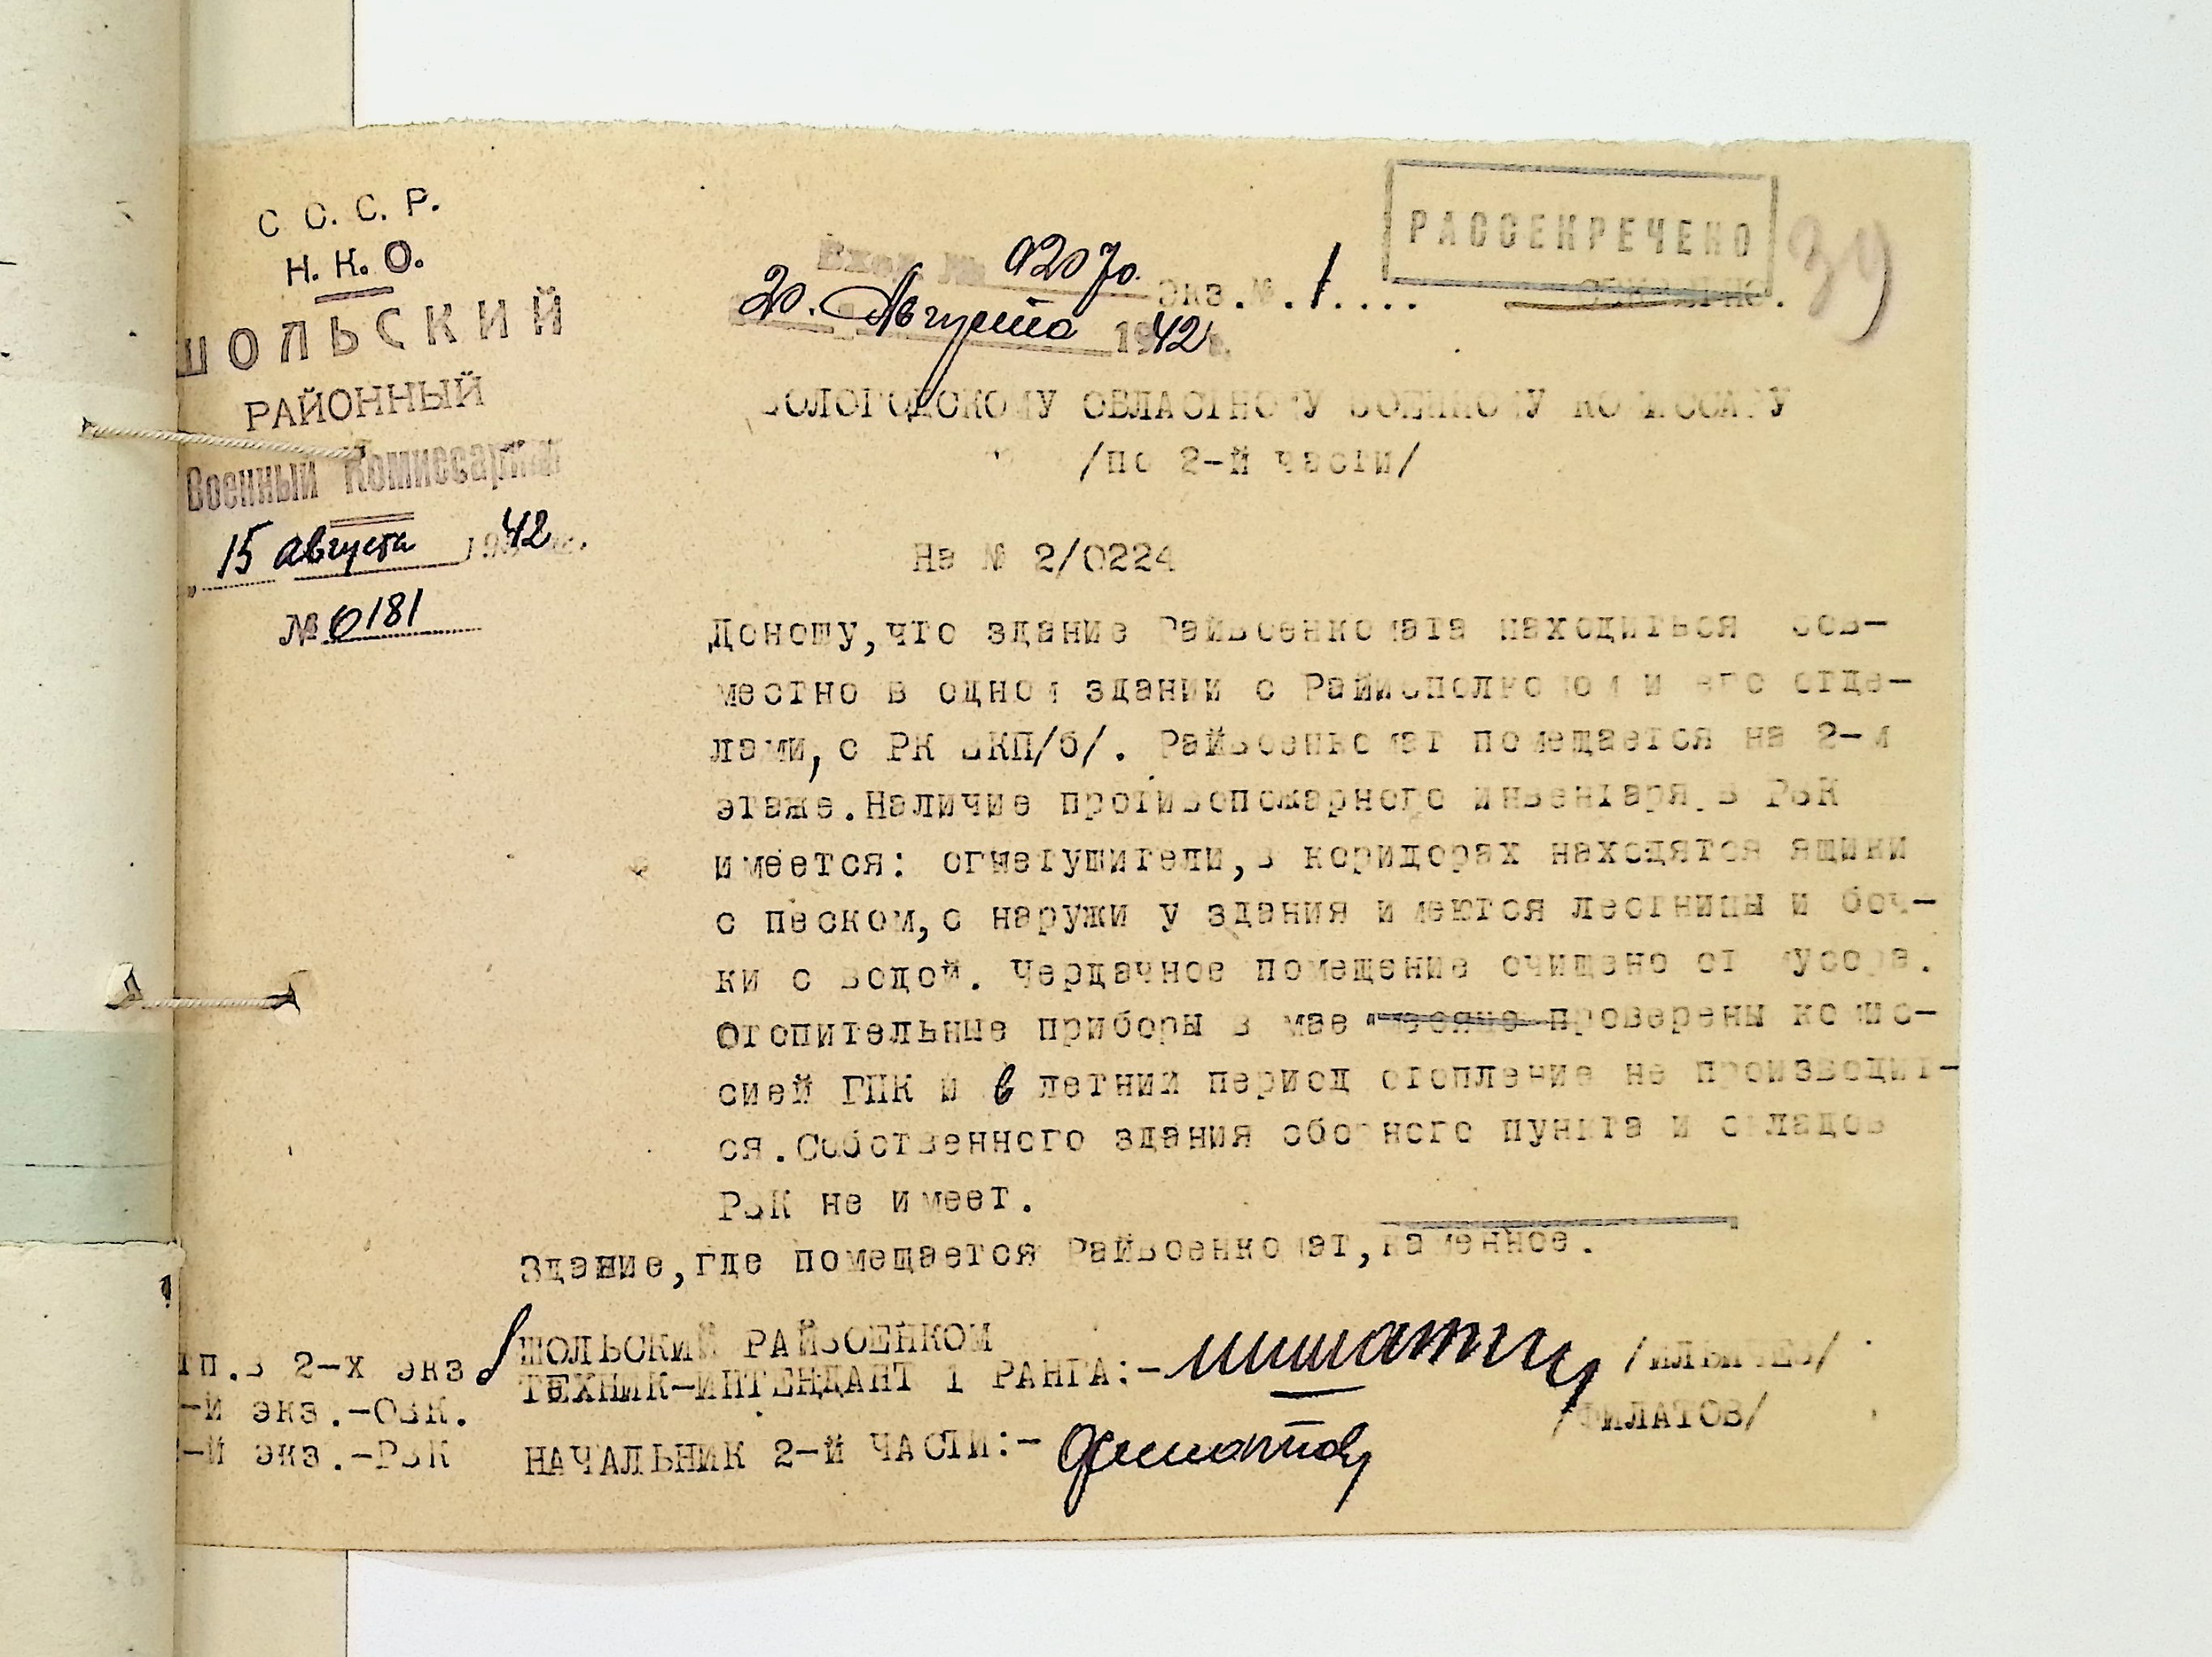 С С. С. Р.
Н. К. О.
ШОЛЬСКИЙ
РАЙОННЫЙ
Военный Комиссариат
15 августа 1942 г.
№ 0181
РАССЕКРЕЧЕНО
39
Вход. №
20. Августа 1942 г.
Экз.№.1....
ВОЛОГОДСКОМУ ОБЛАСТНОМУ ВОЕННОМУ КОМИССАРУ
/по 2-й части/
На № 2/0224
Доношу,что здание Райвоенкомата находиться сов-
местно в одном здании с Райисполкомом и его отде-
лами,с РК ВКП/б/. Райвоенкомат помещается на 2-м
этаже.Наличие противопожарного инвентаря в РВК
имеется: огнетушители,в коридорах находятся ящики
с песком,с наружи у здания имеются лестницы и боч-
ки с водой. Чердачное помещение очищено от мусора.
Отопительные приборы в мае месяце проверены комис-
сией ГПК и в летний период отопление не производит-
ся.Собственного здания сборного пункта и складов
РВК не имеет.
Здание,где помещается Райвоенкомат,каменное.
ШОЛЬСКИЙ РАЙВОЕНКОМ
ТЕХНИК-ИНТЕНДАНТ 1 РАНГА:-
/ФИЛАТОВ/
НАЧАЛЬНИК 2-Й ЧАСТИ:- Филатов
п.в 2-х экз
-й экз.-ОВК.
-й экз.-РВК